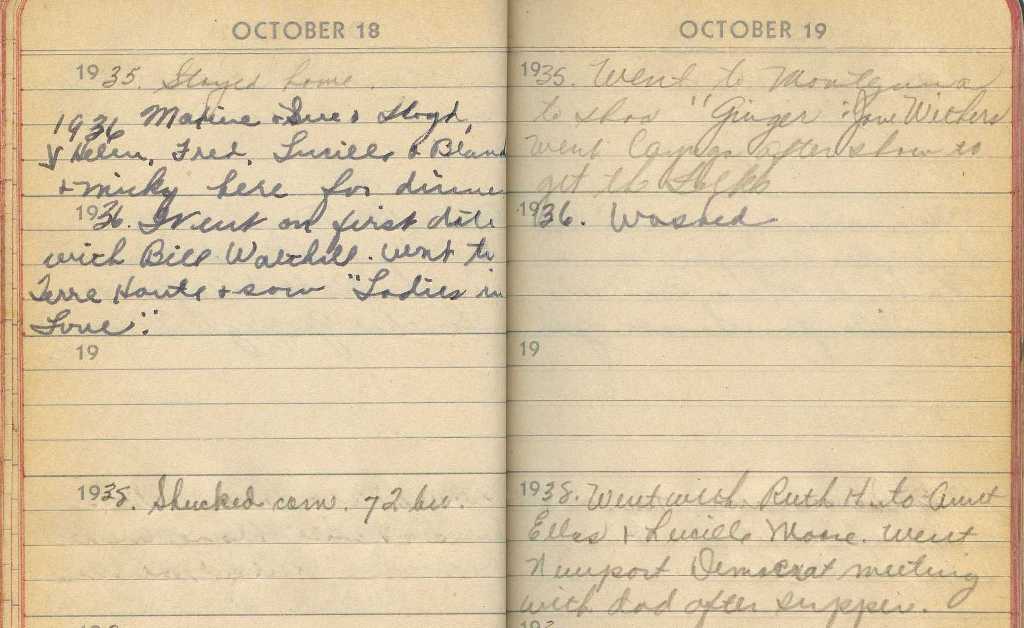 OCTOBER 18
1935. Stayed home.
1936 Maxine + Sue + Lloyd,
Helen, Fred, Lucille + Bland
+ Micky here for dinner
1936. Went on first date
with Bill Walthill. Went to
Terre Haute + saw "Ladies in
Love".
19
1938. Shucked corn. 72 bu.
OCTOBER 19
1935. Went to Montezuma
to show "Ginger": Jane Withers
Went after show to
get the folks
1936. Washed
19
1938. Went with Ruth H. to Aunt
Ellas + Lucille Moore. Went
Newport Democrat meeting
with dad after supper.